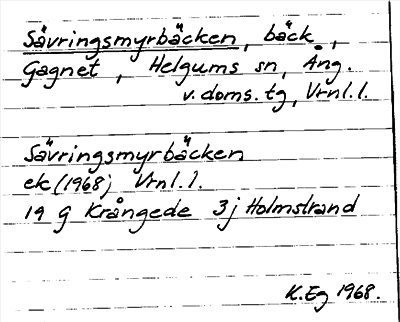 Sävringsmyrbäcken, bäck,
Gagnet, Helgums sn, Ång.
v.doms.tg, Vrnl.l.
Sävringsmyrbäcken
ek (1968) Vrnl.l.
19 G Krångede 3j Holmstrand
K.Eg 1968.